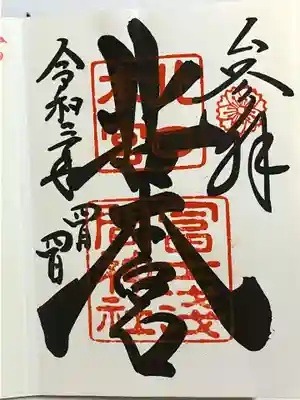 参拝
北口本宮
冨士浅
間神社
令和二年
四月
四日